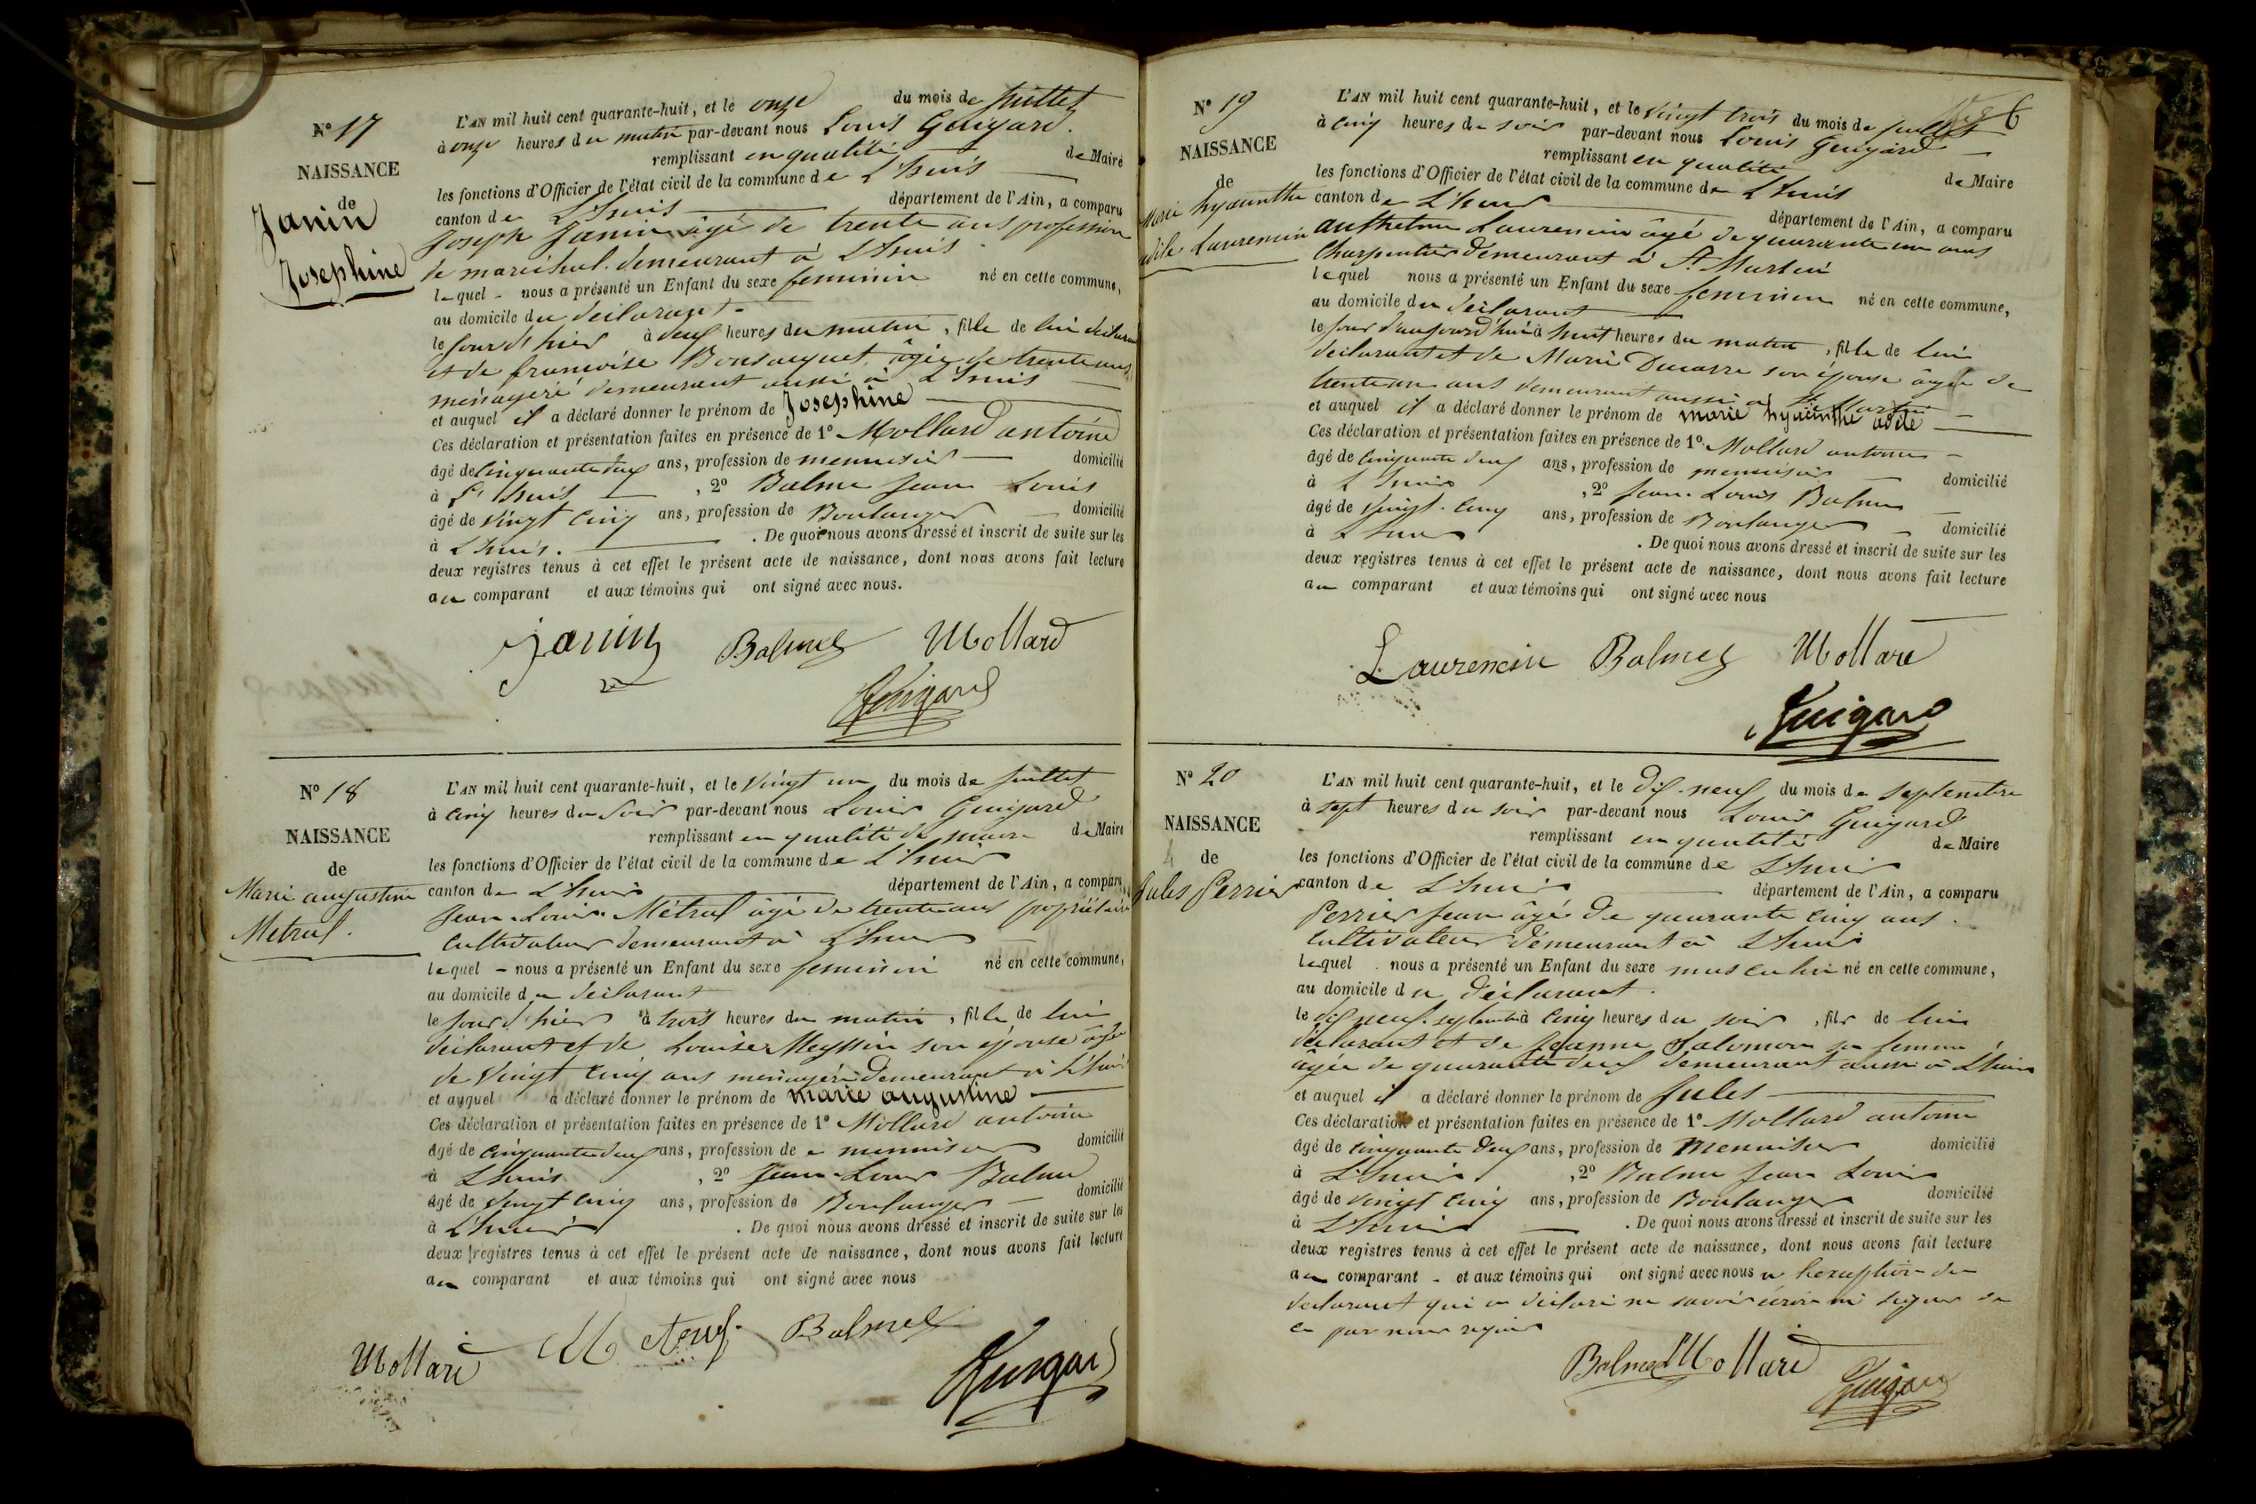 N° 17
NAISSANCE
de
Janin
Josephine
L'AN mil huit cent quarante-huit, et le onze du mois de juillet
à onze heures du matin par-devant nous Louis Guigard.
remplissant en qualité de Maire
les fonctions d'Officier de l'état civil de la commune de L'huis
canton de L'huis département de l'Ain, a comparu
Joseph Janin âgé de trente ans profession
de maréchal. demeurant à L'huis
lequel - nous a présenté un Enfant du sexe feminin né en cette commune,
au domicile du déclarant -
le jour d'hier à deux heures du matin, fille de lui déclarant
et de françoise Bonsacquet âgée de trente ans
ménagère demeurant aussi à L'huis
et auquel il a déclaré donner le prénom de Josephine
Ces déclaration et présentation faites en présence de 1° Mollard antoine
âgé de cinquante deux ans, profession de menuisier domicilié
à L'huis, 2° Balme jean Louis
âgé de vingt cinq ans, profession de Boulanger domicilié
à L'huis. . De quoi nous avons dressé et inscrit de suite sur les
deux registres tenus à cet effet le présent acte de naissance, dont nous avons fait lecture
au comparant et aux témoins qui ont signé avec nous.
janin Balme Mollard
Guigard
N° 18
NAISSANCE
de
Marie augustine
Metral.
L'AN mil huit cent quarante-huit, et le vingt un du mois de juillet
à cinq heures du soir par-devant nous Louis Guigard
remplissant en qualité de maire de Maire
les fonctions d'Officier de l'état civil de la commune de L'huis
canton de L'huis département de l'Ain, a comparu
Jean-Louis Métral âgé de trente ans propriétaire
cultivateur demeurant à L'huis
lequel - nous a présenté un Enfant du sexe feminin né en cette commune,
au domicile du déclarant
le jour d'hier à trois heures du matin, fille de lui
déclarant et de Louise Meyssin son épouse âgée
de vingt cinq ans ménagère demeurant à L'huis
et auquel a déclaré donner le prénom de marie augustine
Ces déclaration et présentation faites en présence de 1° Mollard antoine
âgé de cinquante deux ans, profession de menuisier domicilié
à L'huis, 2° Jean-Louis Balme
âgé de vingt cinq ans, profession de Boulanger domicilié
à L'huis . De quoi nous avons dressé et inscrit de suite sur les
deux registres tenus à cet effet le présent acte de naissance, dont nous avons fait lecture
au comparant et aux témoins qui ont signé avec nous
Mollard Balme
Guigard
6
N° 19
NAISSANCE
de
Marie hyacinthe
adèle Laurencin
L'AN mil huit cent quarante-huit, et le vingt trois du mois de juillet
à cinq heures du soir par-devant nous Louis Guigard
remplissant en qualité de Maire
les fonctions d'Officier de l'état civil de la commune de L'huis
canton de L'huis département de l'Ain, a comparu
anthelme Laurencin âgé de quarante un ans
Charpentier demeurant à St Martin
lequel nous a présenté un Enfant du sexe feminin né en cette commune,
au domicile du déclarant
le jour d'aujourd'hui à huit heures du matin, fille de lui
déclarant et de Marie Ducarre son épouse âgée de
trente un ans demeurant aussi à St Martin
et auquel il a déclaré donner le prénom de marie hyacinthe adèle
Ces déclaration et présentation faites en présence de 1° Mollard antoine
âgé de cinquante deux ans, profession de menuisier domicilié
à L'huis, 2° jean-Louis Balme
âgé de vingt-cinq ans, profession de Boulanger domicilié
à L'huis . De quoi nous avons dressé et inscrit de suite sur les
deux registres tenus à cet effet le présent acte de naissance, dont nous avons fait lecture
au comparant et aux témoins qui ont signé avec nous
Laurencin Balme Mollard
Guigard
N° 20
NAISSANCE
de
Jules Perrier
L'AN mil huit cent quarante-huit, et le dix-neuf du mois de septembre
à sept heures du soir par-devant nous Louis Guigard
remplissant en qualité de Maire
les fonctions d'Officier de l'état civil de la commune de L'huis
canton de L'huis département de l'Ain, a comparu
Perrier jean âgé de quarante cinq ans.
cultivateur demeurant à L'huis
lequel nous a présenté un Enfant du sexe masculin né en cette commune,
au domicile du déclarant.
le dix neuf septembre à cinq heures du soir, fils de lui
déclarant et de jeanne Salomon sa femme
âgée de quarante deux demeurant aussi à L'huis
et auquel il a déclaré donner le prénom de jules
Ces déclaration et présentation faites en présence de 1° Mollard antoine
âgé de cinquante deux ans, profession de menuisier domicilié
à L'huis, 2° Balme jean Louis
âgé de vingt cinq ans, profession de Boulanger domicilié
à L'huis . De quoi nous avons dressé et inscrit de suite sur les
deux registres tenus à cet effet le présent acte de naissance, dont nous avons fait lecture
au comparant - et aux témoins qui ont signé avec nous a l'exception du
déclarant qui a déclaré ne savoir écrire ni signer de
ce par nous requis
Balme Mollard
Guigard